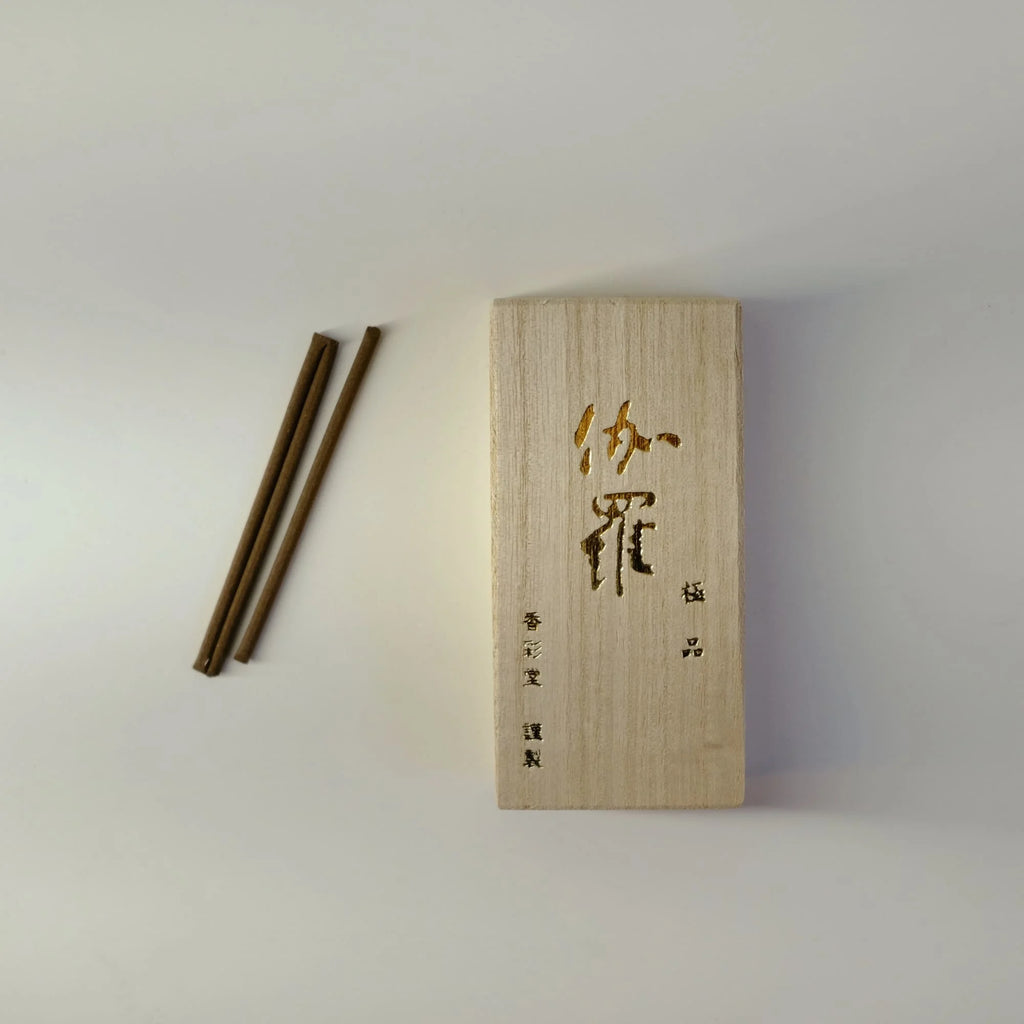 極品
伽羅
香彩堂 謹製